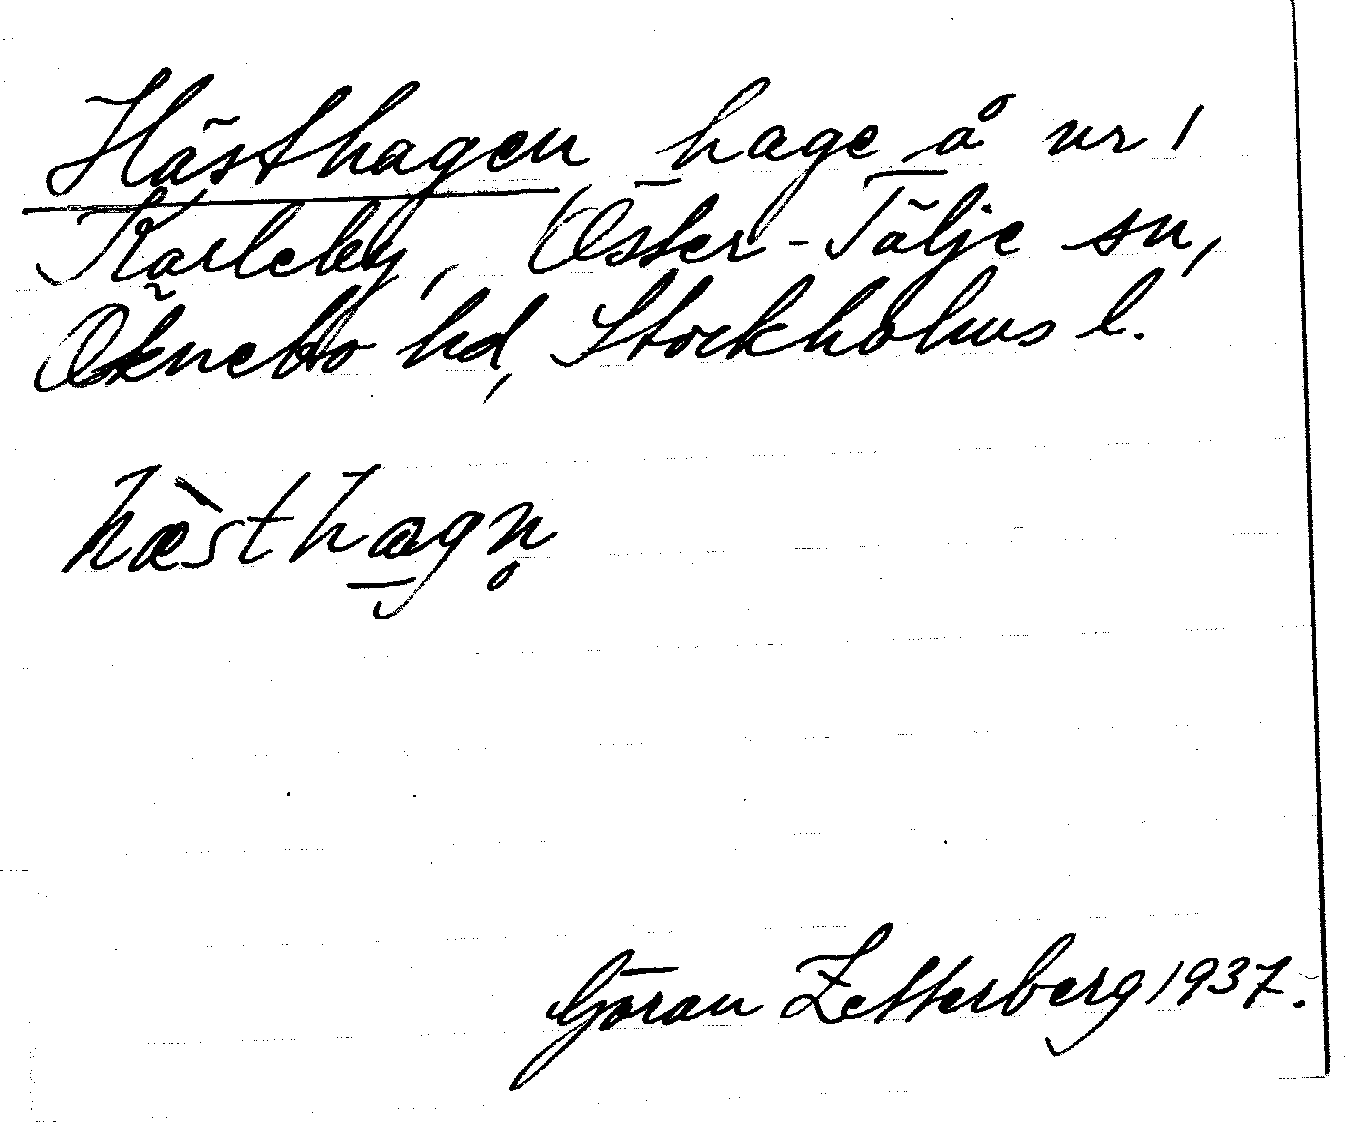 Hästhagen hage å nr 1
Karleby, Öster-Tälje sn,
Öknebo hd, Stockholms l.
hæ̀sthag̱n̥
Göran Zetterberg 1937.